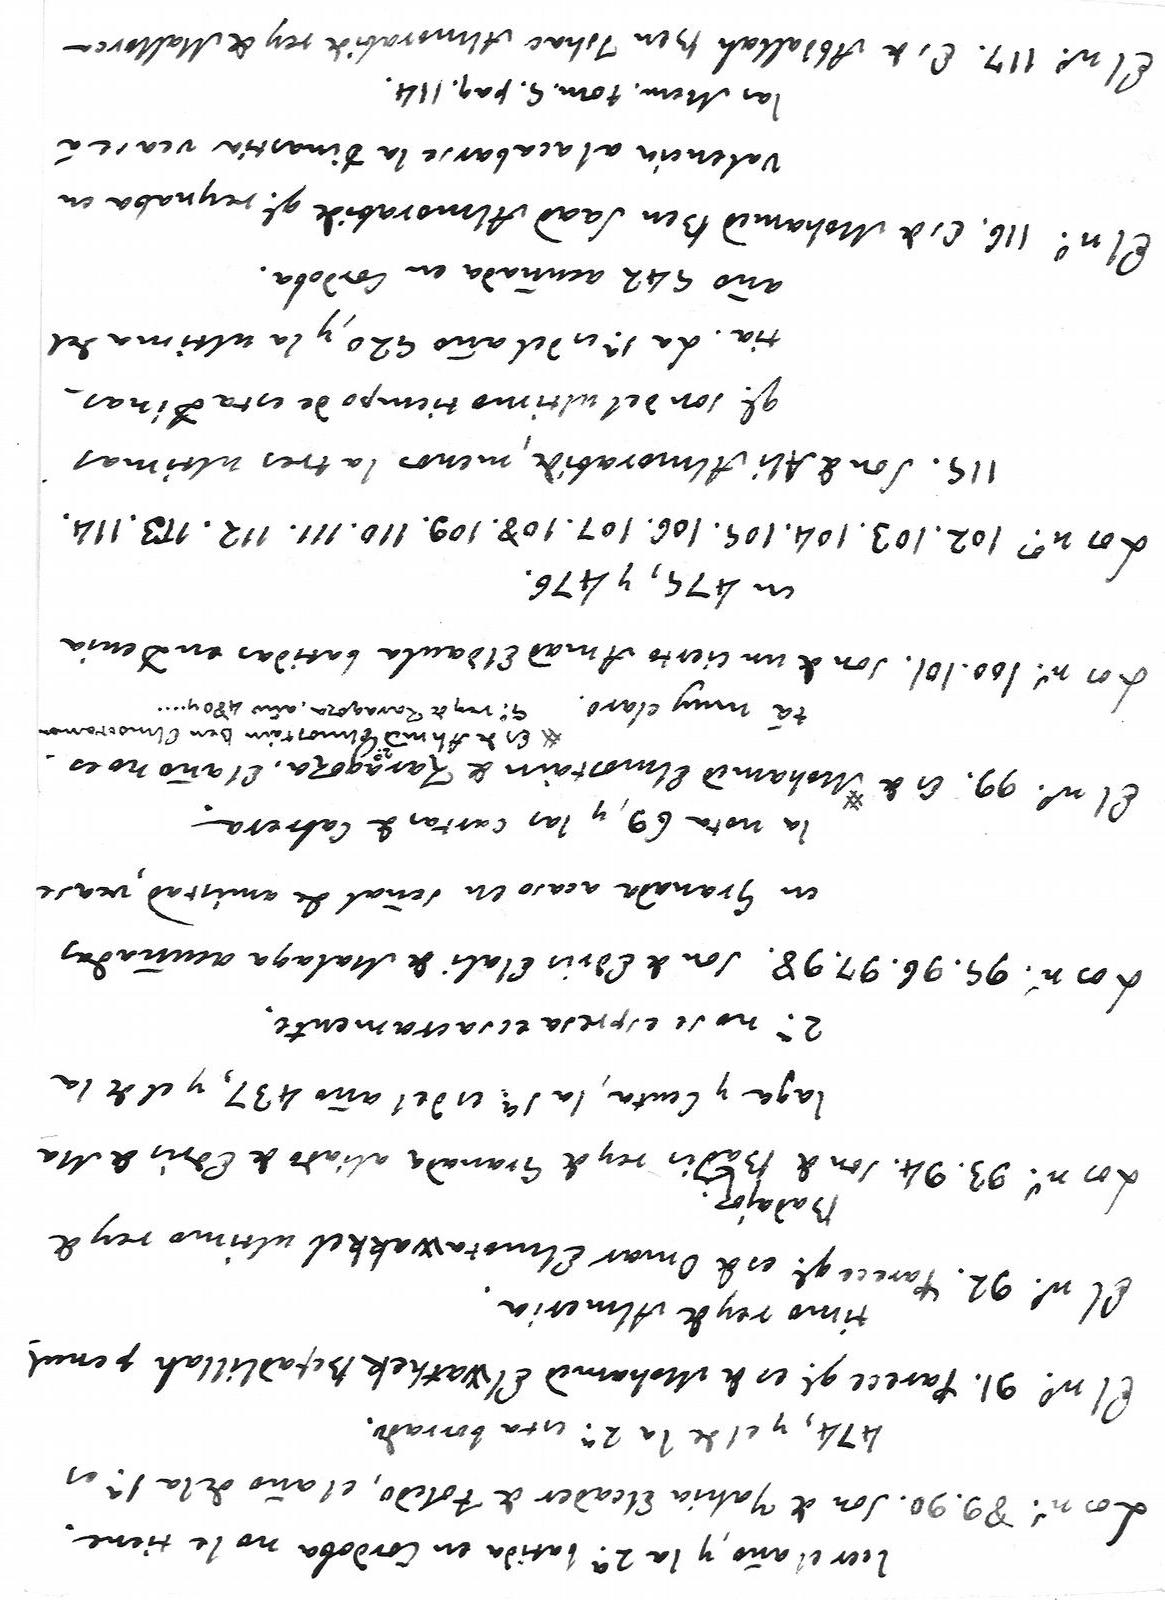 leer el año, y la 2ª. batida en Cordoba no le tiene.
Los nº. 89.90. Son de Yahia Elcader de Toledo, el año de la 1ª. es
474, y el de la 2ª. esta borrado.
El nº. 91. Parece qe. es de Mohamed El Wathek Befadlillah penul
timo rey de Almeria.
El nº. 92. Parece qe. es de Omar Elmotawakkel ultimo rey de
Badajoz.
Los nº. 93.94. Son de Badis rey de Granada aliado de Edris de Ma
laga y Ceuta, la 1ª. es del año 437, y el de la
2ª. no se espresa ecsactamente.
Los nº. 95.96.97.98. Son de Edris Elali de Malaga acuñadas
en Granada acaso en señal de amistad, vease
la nota 69, y las cartas de Cabrera.
El nº. 99. Es de # Mohamed Elmostain 2º. de Zaragoza. El año no es-
tá muy claro.
# Es de Ahmed Elmostain ben Elmoctaman
5º. rey de Zaragoza. año 480 y....
Los nº. 100.101. Son de un cierto Amad Eldaula batidas en Denia
en 475, y 476.
Los nºs. 102.103.104.105.106.107.108.109.110.111.112.113.114.
115. Son de Ali Almorabide, menos la tres ultimas
qe. son del ultimo tiempo de esta Dinas-
tia. La 1ª. es del año 520, y la ultima del
año 542 acuñada en Cordoba.
El nº. 116. Es de Mohamed Ben Saad Almorabide qe. reynaba en
Valencia al acabarse la Dinastia vease á
las Mem. tom. 5. pag. 114.
El nº. 117. Es de Abdallah Ben Ishac Almorabide rey de Mallorca